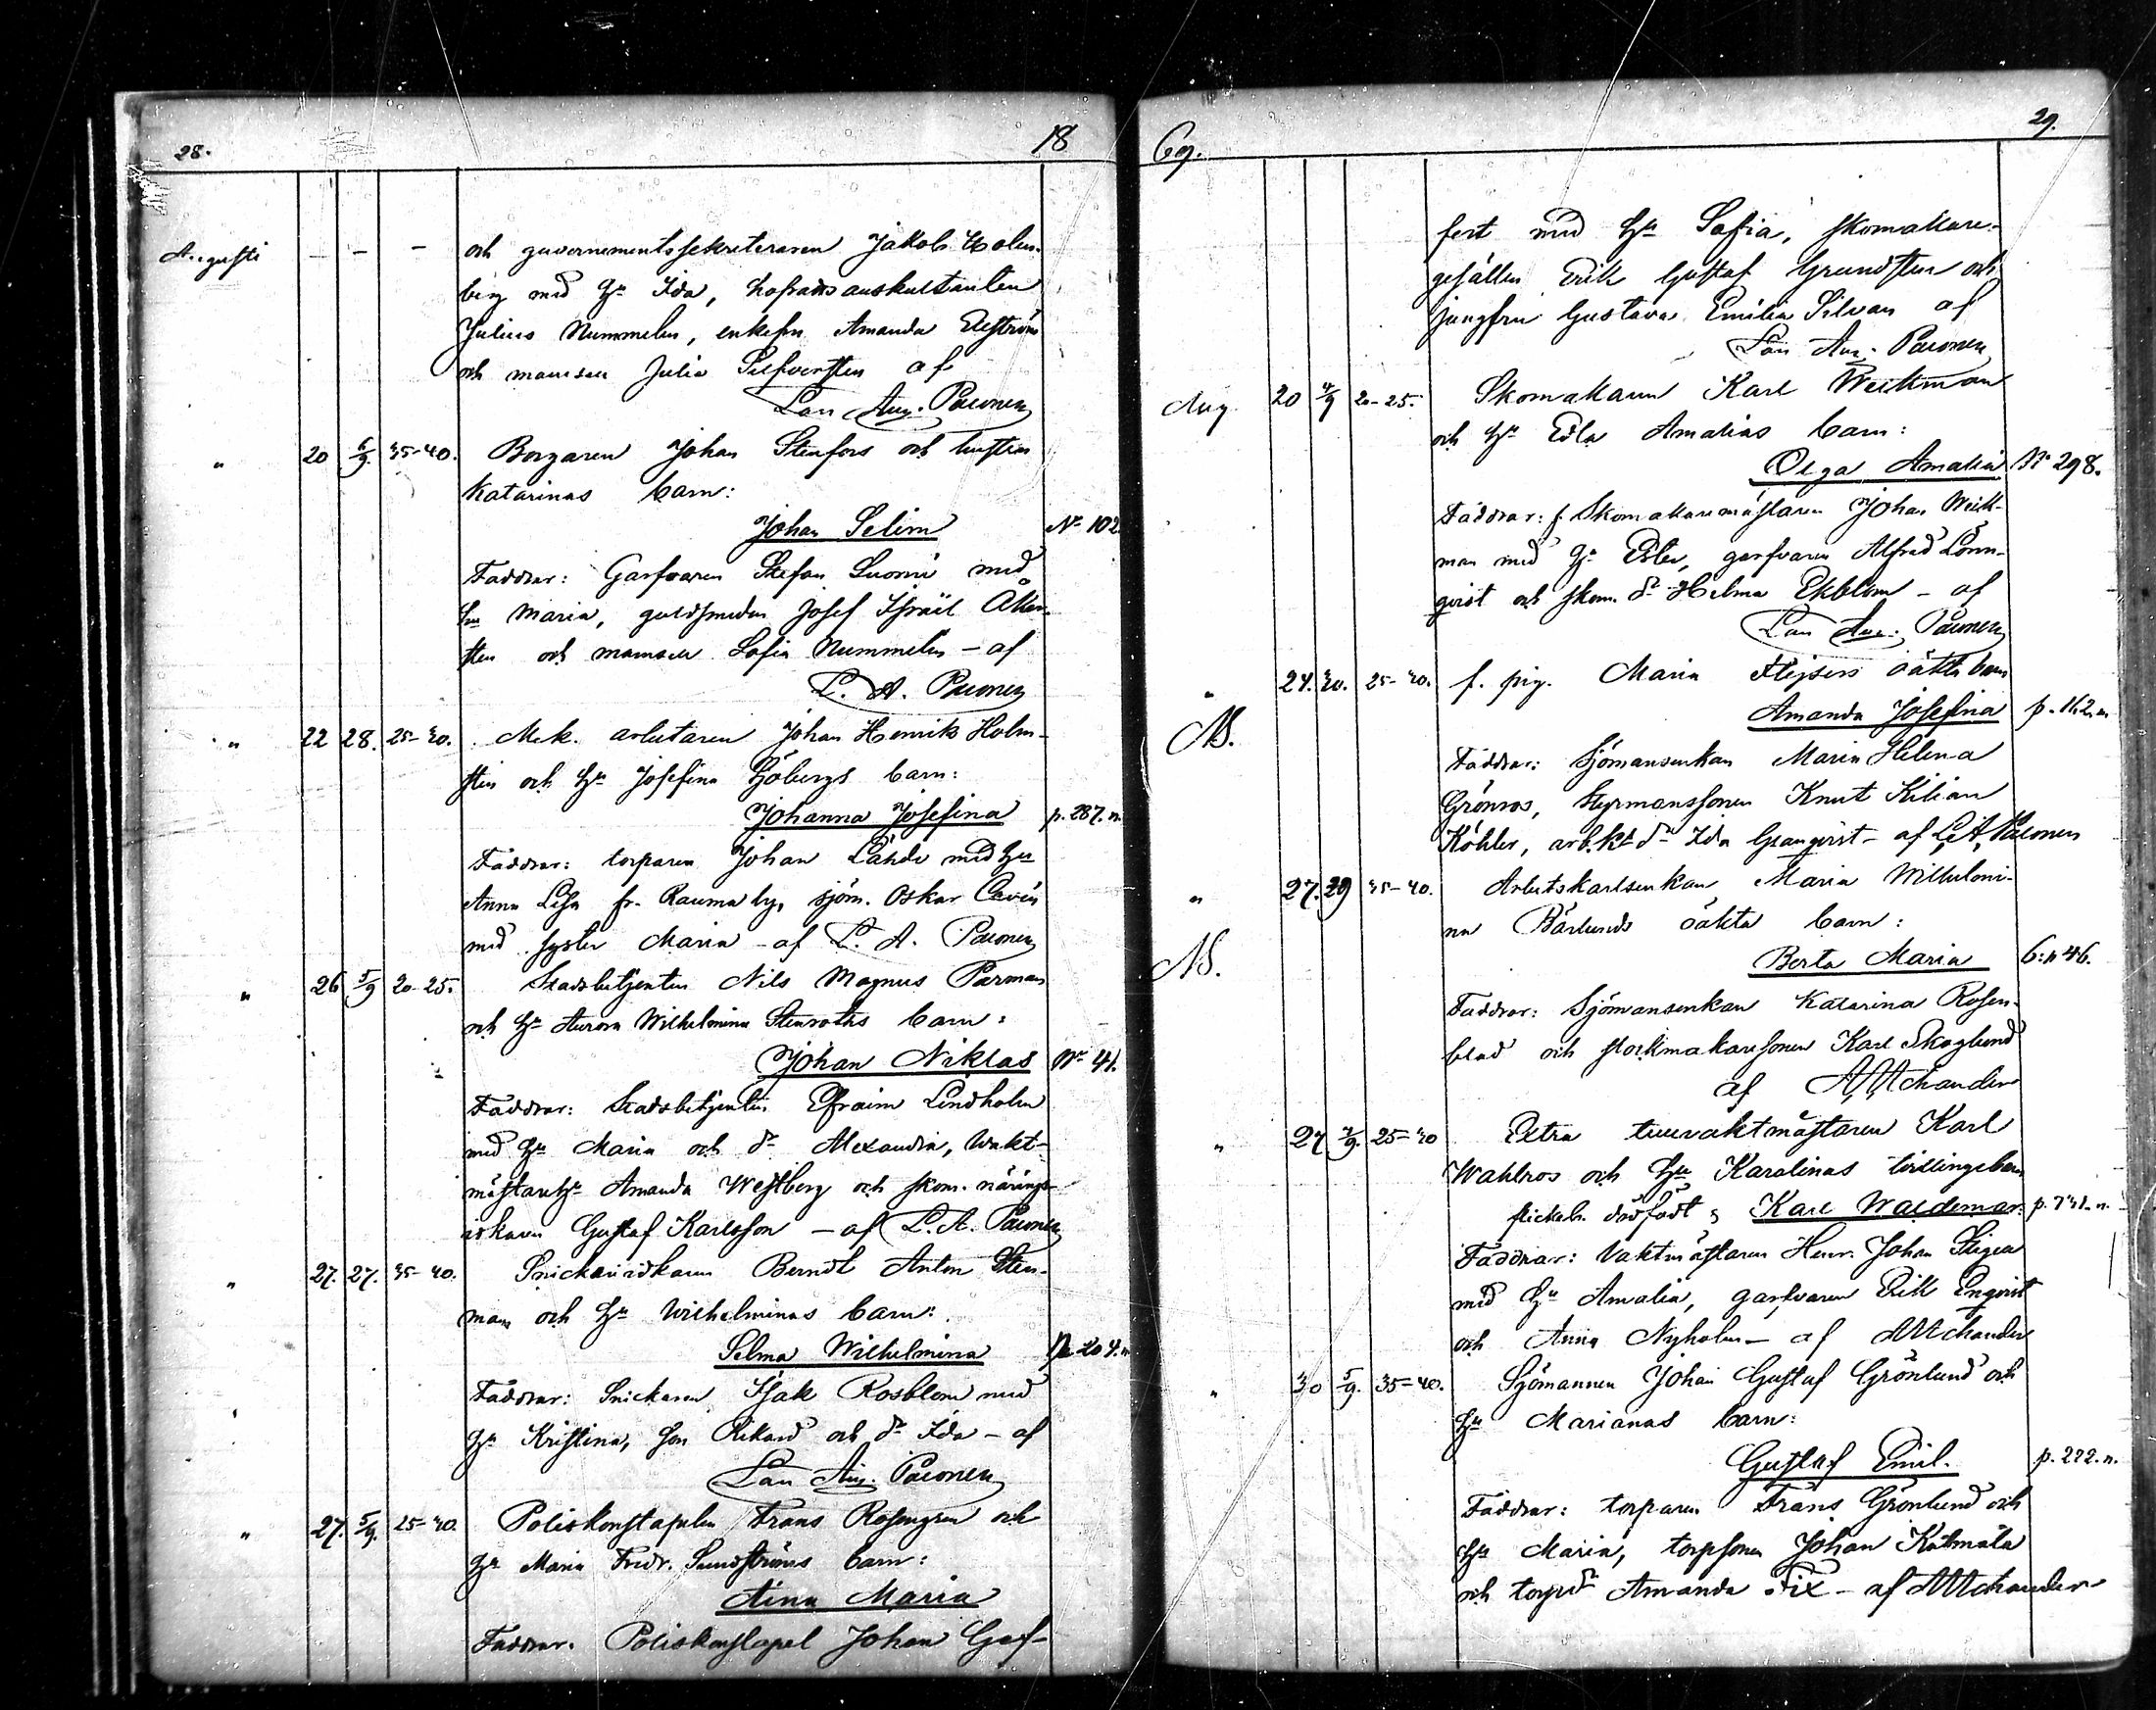 28. 18
Augusti - - - och guvernementssekreteraren Jakob Holm-
berg med Hu Ida, hofrådsauskultanten
Julius Nummelin, enkefru Amanda Ekström
och mamsell Julia Silfversten af
Lars Aug. Päivonen
" 20 6/9. 35-40. Borgaren Johan Stenfors och hustrun
Katarinas barn:
Johan Selim No 102
Faddrar: Garfvaren Stefan Suomi med
hu Maria, guldsmeden Josef Israël Åker-
sten och mamsell Sofia Nummelin - af
L. A. Päivonen
" 22 28. 25-30. Mek. arbetaren Johan Henrik Holm-
sten och Hu Josefina Sjöbergs barn:
Johanna Josefina p. 287. n.
Faddrar: torparen Johan Lähde med Hu
Anna Lisa fr. Raumo by, sjöm. Oskar
med syster Maria - af L. A. Päivonen
" 26 5/9 20-25. Stadsbetjenten Nils Magnus Parman
och Hu Aurora Wilhelmina Stenroths barn:
Johan Niklas No 41.
Faddrar: Stadsbetjenten Efraim Lindholm
med Hu Maria och dr Alexandra, Vakt-
mästarehu Amanda Westberg och skom. närings-
idkaren Gustaf Karlsson - af L. A. Päivonen
" 27. 27. 35-40. Snickeriidkaren Berndt Anton Sten-
man och Hu Wilhelminas barn:
Selma Wilhelmina p. 204. n
Faddrar: Snickaren Isak Rosblom med
Hu Kristina, son Rikard och dr Ida - af
Lars Aug. Päivonen
" 27. 5/9. 25-30. Poliskonstapeln Frans Rosengren och
Hu Maria Fredr. Sundströms barn:
Aina Maria
Faddrar. Poliskonstapel Johan Gref-
69. 29.
fert med Hu Sofia, skomakare-
gesällen Erik Gustaf Grundsten och
jungfru Gustava Emilia Silvan af
Lars Aug. Päivonen
Aug. 20 4/9 20-25. Skomakaren Karl Weckman
och Hu Edla Amalias barn:
Olga Amalia No 298.
Faddrar: f. Skomakaremästaren Johan Weck-
man med Hu Ester, garfvaren Alfred Lönn-
qvist och skom. dr Helma Ekblom - af
Lars Aug. Päivonen
" 24. 30. 25-30. f. pig. Maria oäkta barn
Amanda Josefina p. 162. n.
NB.
Faddrar: Sjömansenkan Maria Helena
Grönroos, Styrmanssonen Knut Kilian
Köhler, arb.k. dr Ida Granqvist - af L. A. Päivonen
" 27. 29 35-40. Arbetskarlsenkan Maria Wilhelmi-
na Bärlunds oäkta barn:
NB. Berta Maria 6:n 46.
Faddrar: Sjömansenkan Katarina Rosen-
blad och stockmakaresonen Karl Skoglund
af
" 27 7/9. 25-30 Extra tullvaktmästaren Karl
Wahlroos och Hu Karolinas tvillingebarn
flickeb. dödfödt & Karl Waldemar: p. 731. n.
Faddrar: Vaktmästaren Henr. Johan
med Hu Amalia, garfvaren Erik Enqvist
och Anna Nyholm - af
" 30 5/9. 35-40. Sjömannen Johan Gustaf Grönlund och
Hu Marianas barn:
Gustaf Emil. p. 222. n.
Faddrar: torparen Frans Grönlund och
Hu Maria, torpsonen Johan
och torpdr Amanda Fix - af